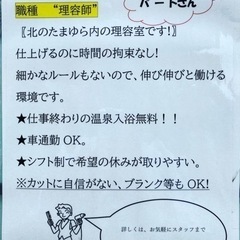 パートさん
職種 “理容師”
〖北のたまゆら内の理容室です!〗
仕上げるのに時間の拘束なし!
細かなルールもないので、伸び伸びと働ける
環境です。
★仕事終わりの温泉入浴無料!!
★車通勤OK。
★シフト制で希望の休みが取りやすい。
※カットに自信がない、ブランク等もOK!
詳しくは、お気軽にスタッフまで